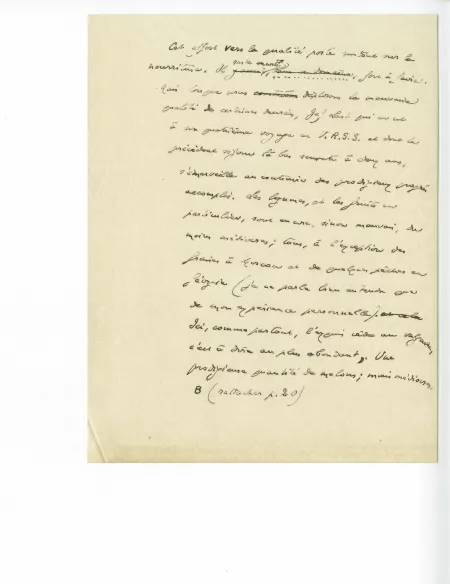 Cet effort vers la qualité porte surtout sur la
nourriture. Il reste beaucoup à faire.
Mais lorsque nous déplorons la mauvaise
qualité de certaines denrées, Jef Last qui en est
à son quatrième voyage en U.R.S.S. et dont le
précédent séjour là-bas remonte à deux ans,
s'émerveille au contraire des prodigieux progrès
accomplis. Les légumes, et les fruits en
particulier, sont encore, sinon mauvais, du
moins médiocres; tous, à l'exception des
fraises à Moscou et de quelques pêches en
Géorgie (je ne parle bien entendu que
de mon expérience personnelle)
Ici, comme partout, l'exquis cède au vulgaire,
c'est à dire au plus abondant. Une
prodigieuse quantité de melons; mais médiocres.
B (rattacher p. 20)